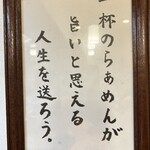 杯のらぁめんが
旨いと思える
人生を送ろう。